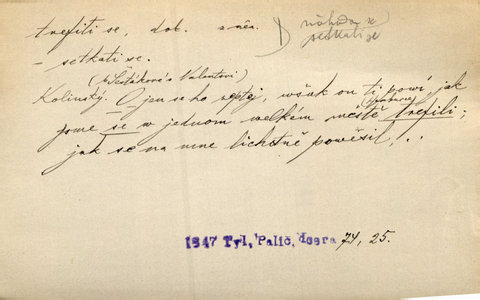 trefiti se, dok. z něm. náhodou se
– setkati se. setkati se
(K Šesťákové a Valentovi)
Kolinský. O jen se ho zeptej, však on ti poví, jak
jsme se v jednom velkém městě trefili;
jak se na mne lichotně pověsil,..
1847 Tyl, Palič. dcera 74, 25.